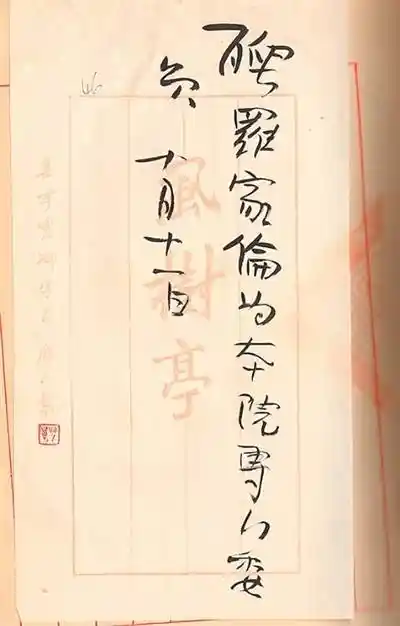 聘羅家倫為本院專門委
員 十月十一日
風樹亭